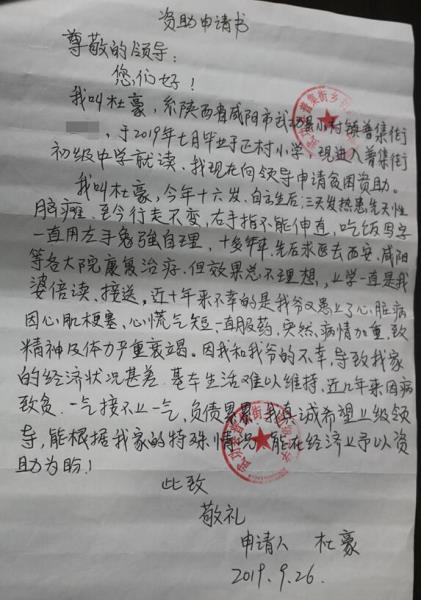 资助申请书
尊敬的领导：
您们好！
我叫杜豪，系陕西省咸阳市武功县小村镇普集街
，于2019年七月毕业于区村小学，现进入普集街
初级中学就读，我现在向领导申请贫困资助。
我叫杜豪，今年十六岁，自之生后三天发热患先天性
脑瘫，至今行走不变，右手指不能伸直，吃饭写字
一直用左手勉强自理，十多年来，先后求医去西安、咸阳
等各大院康复治疗，但效果总不理想，上学一直是我
婆倍读、接送，近十年来不幸的是我爷又患上了心脏病
因心肌梗塞、心慌气短一直服药，突然、病情加重，致
精神及体力严重衰竭。因我和我爷的不幸，导致我家
的经济状况甚差，基本生活难以维持，近几年来因病
致负，一气接不上一气，负债累累，我真诚希望上级领
导，能根据我家的特殊情况，能在经济上予以资
助为盼！
此致
敬礼
申请人 杜豪
2019.9.26.